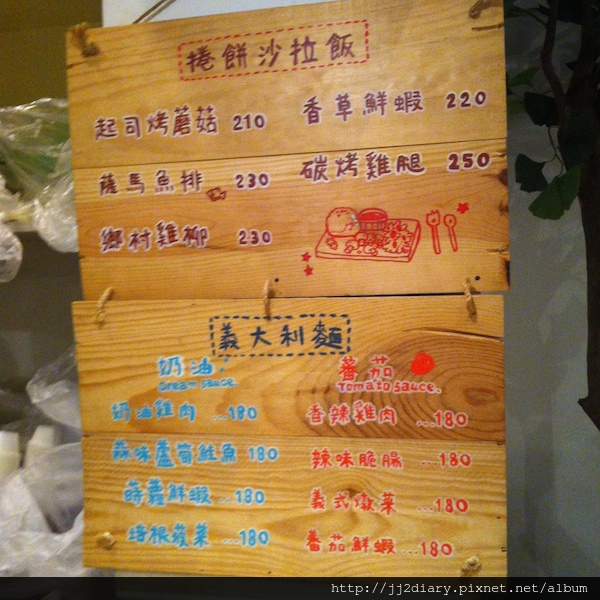 捲餅沙拉飯
起司烤蘑菇 210
香草鮮蝦 220
薩馬魚排 230
碳烤雞腿 250
鄉村雞柳 230
義大利麵
奶油
Cream sauce.
番茄
Tomato sauce.
奶油雞肉 ...180
香辣雞肉 ...180
蒜味蘆筍鮭魚 180
辣味脆腸 ...180
蒔蘿鮮蝦 ...180
義式燉菜 ...180
培根菠菜 ...180
番茄鮮蝦 ...180
http://jj2diary.pixnet.net/album